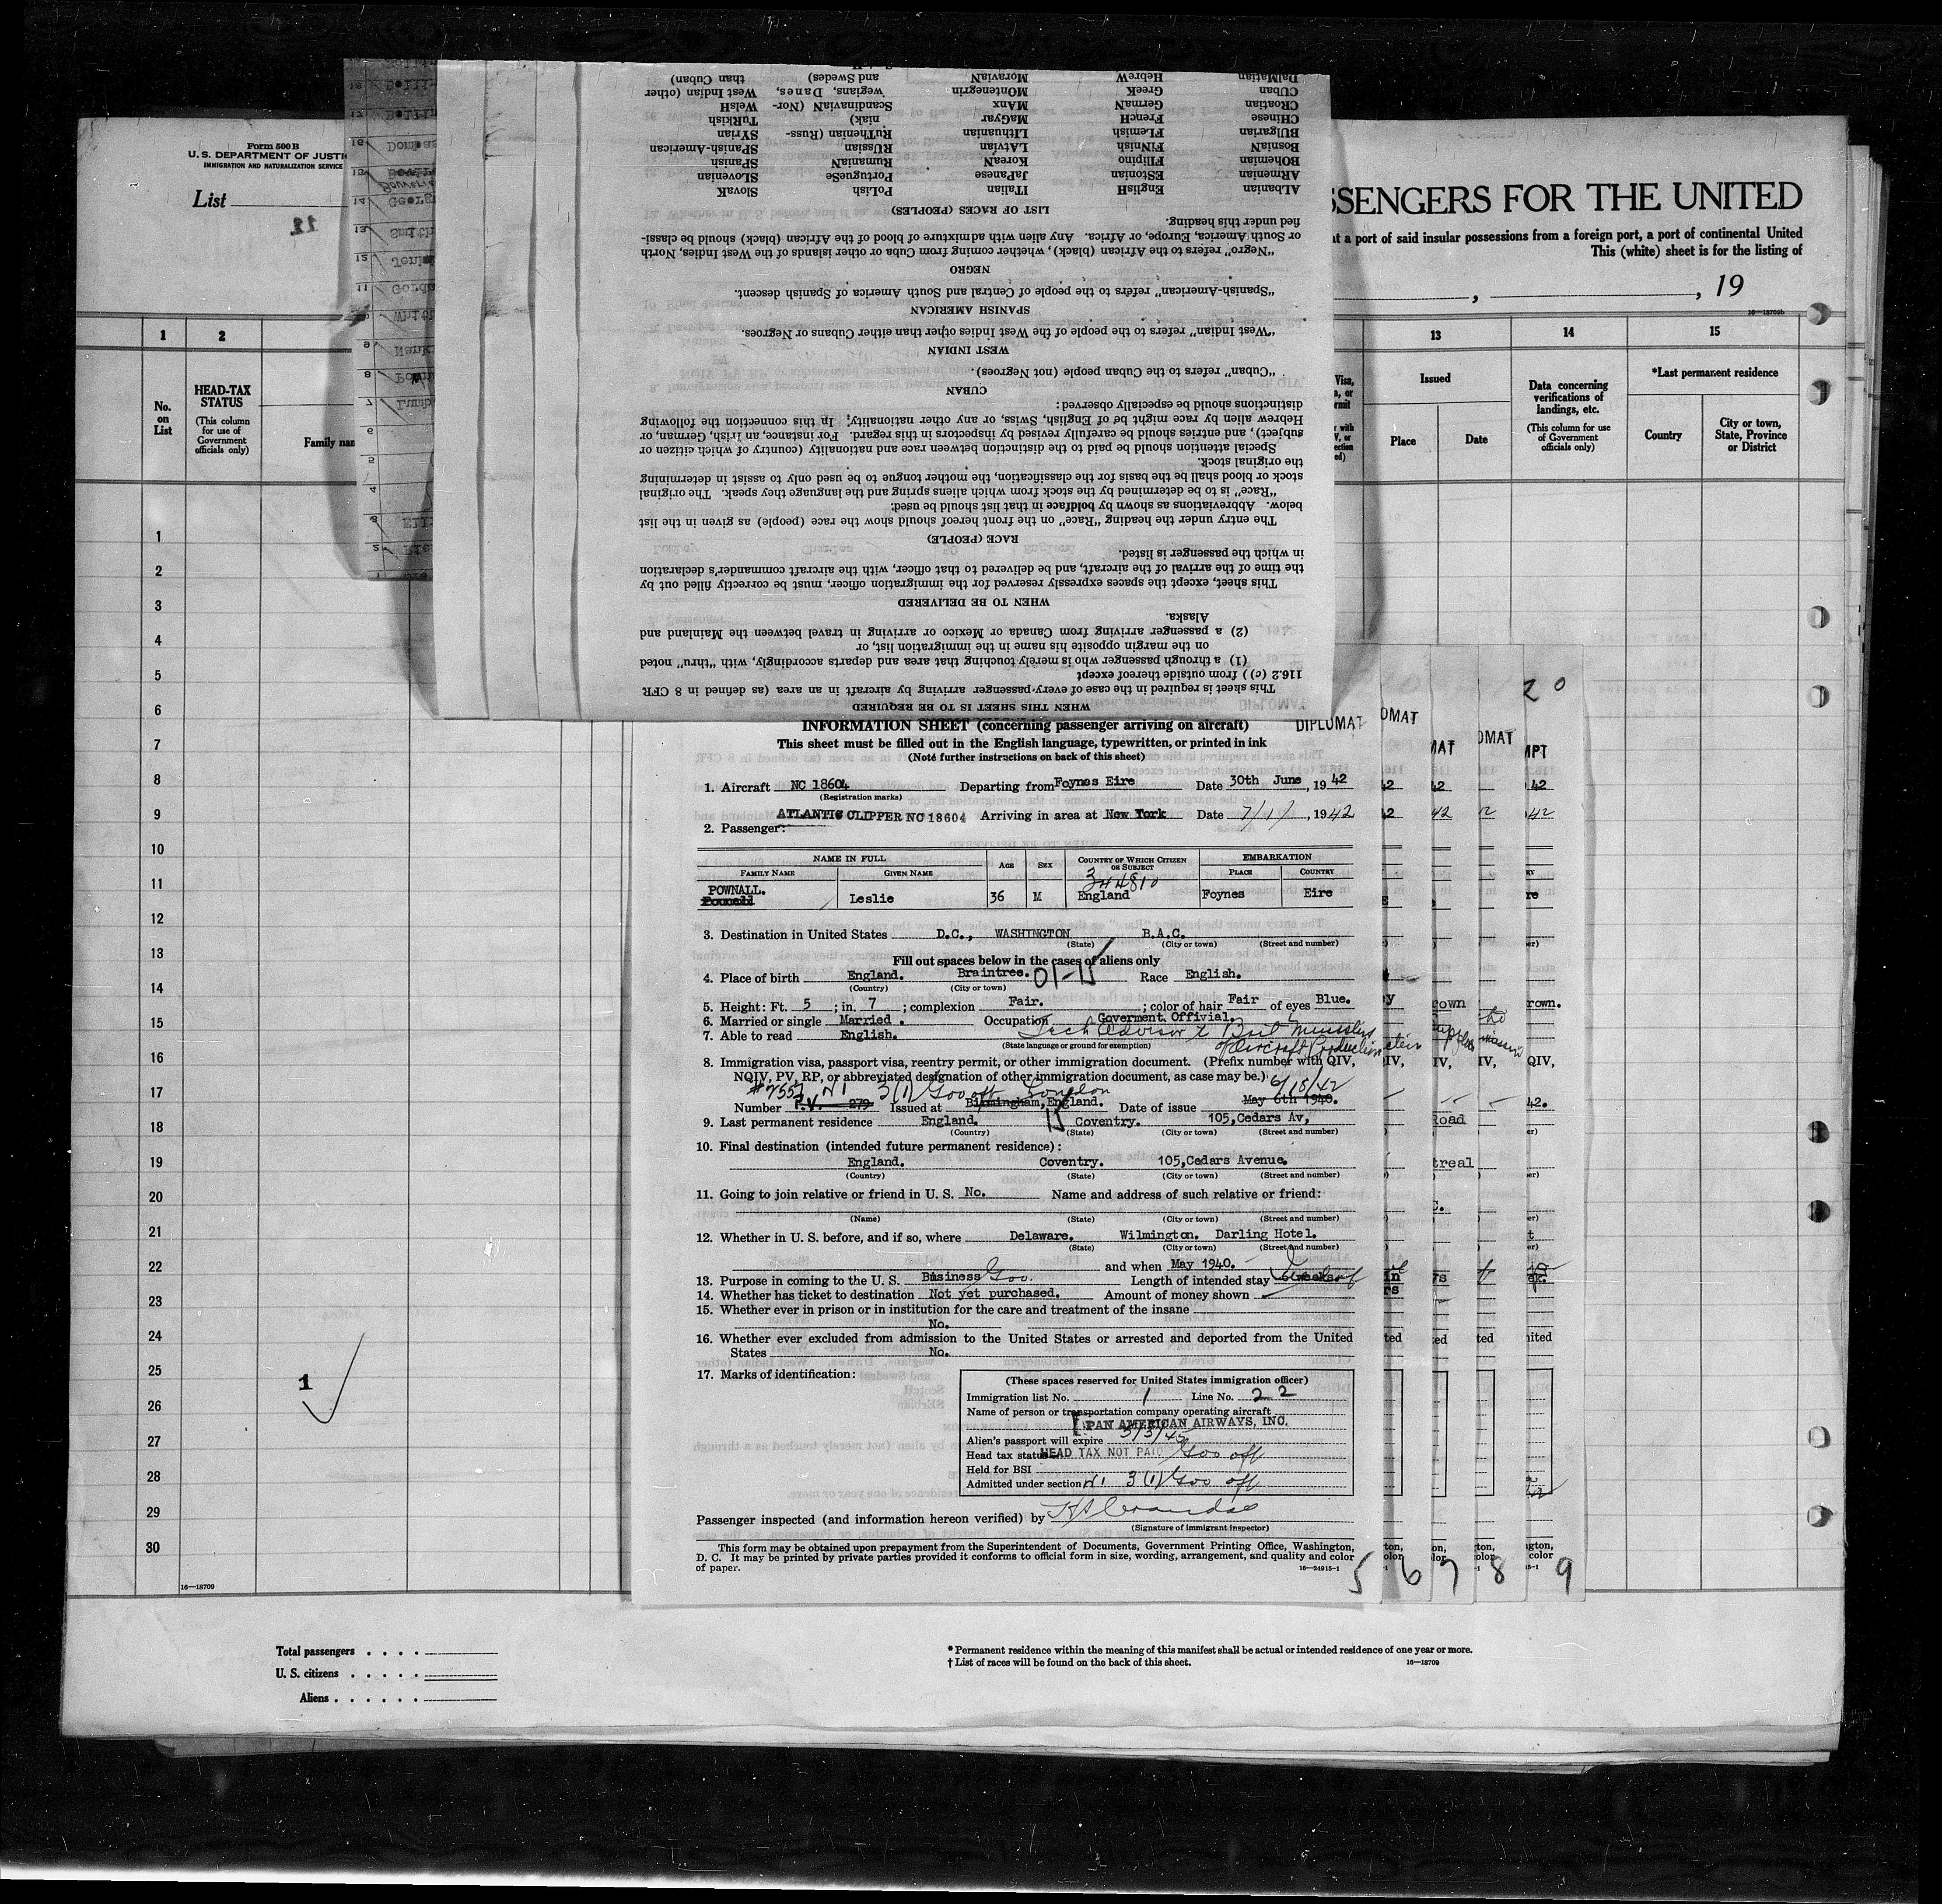 Form 500 B
U. S. DEPARTMENT OF JUSTI
IMMIGRATION AND NATURALIZATION SERVICE
List
11
SSENGERS FOR THE UNITED
at a port of said insular possessions from a foreign port, a port of continental United
This (white) sheet is for the listing of
, , 19
16—18709b
1 2
No. on List
HEAD-TAX STATUS
(This column for use of Government officials only)
Family nam
13 14 15
Issued
Place Date
Data concerning verifications of landings, etc.
(This column for use of Government officials only)
*Last permanent residence
Country
City or town, State, Province or District
1
2
3
4
5
6
7
8
9
10
11
12
13
14
15
16
17
18
19
20
21
22
23
24
25
26
27
28
29
30
1
16—18709
Total passengers
U. S. citizens
Aliens
* Permanent residence within the meaning of this manifest shall be actual or intended residence of one year or more.
† List of races will be found on the back of this sheet.
16—18709
WHEN THIS SHEET IS TO BE REQUIRED
This sheet is required in the case of every passenger arriving by aircraft in an area (as defined in 8 CFR
116.2 (c) ) from outside thereof except
(1) a through passenger who is merely touching that area and departs accordingly, with "thru" noted
on the margin opposite his name in the immigration list, or
(2) a passenger arriving from Canada or Mexico or arriving in travel between the Mainland and
Alaska.
WHEN TO BE DELIVERED
This sheet, except the spaces expressly reserved for the immigration officer, must be correctly filled out by
the time of the arrival of the aircraft, and be delivered to that officer, with the aircraft commander's declaration
in which the passenger is listed.
RACE (PEOPLE)
The entry under the heading "Race" on the front hereof should show the race (people) as given in the list
below. Abbreviations as shown by boldface in that list should be used:
"Race" is to be determined by the stock from which aliens spring and the language they speak. The original
stock or blood shall be the basis for the classification, the mother tongue to be used only to assist in determining
the original stock.
Special attention should be paid to the distinction between race and nationality (country of which citizen or
subject), and entries should be carefully revised by inspectors in this regard. For instance, an Irish, German, or
Hebrew alien by race might be of English, Swiss, or any other nationality; In this connection the following
distinctions should be especially observed:
CUBAN
"Cuban" refers to the Cuban people (not Negroes).
WEST INDIAN
"West Indian" refers to the people of the West Indies other than either Cubans or Negroes.
SPANISH AMERICAN
"Spanish-American" refers to the people of Central and South America of Spanish descent.
NEGRO
"Negro" refers to the African (black), whether coming from Cuba or other islands of the West Indies, North
or South America, Europe, or Africa. Any alien with admixture of blood of the African (black) should be classi-
fied under this heading.
LIST OF RACES (PEOPLES)
ALbanian ENglisH ITalian POLish SLOvaK
ARMenian EStonian JaPanese PortugueSe SLOvenian
BOHemian FIlipino KoreaN RumaniaN SPanish
BosniaN FINnish LATvian RUSsian SPanish-American
BUlgarian FLEmish LIThuanian RuThenian (Russ- SYrian
CHInese FrencH MaGyar niak) TuRkish
CROatian GermaN MAnx ScandinaviaN (Nor- WelsH
CUban GreeK MOntenegrin wegians, Danes, West Indian (other
DalMatian HebreW MoraviaN and Swedes) than Cuban)
INFORMATION SHEET (concerning passenger arriving on aircraft) DIPLOMAT
This sheet must be filled out in the English language, typewritten, or printed in ink
(Note further instructions on back of this sheet)
1. Aircraft NC 18604 Departing from Foynes Eire Date 30th June, 1942
(Registration marks)
ATLANTIC CLIPPER NC 18604 Arriving in area at New York Date 7/1/, 1942
2. Passenger:
NAME IN FULL AGE SEX COUNTRY OF WHICH CITIZEN OR SUBJECT EMBARKATION
FAMILY NAME GIVEN NAME PLACE COUNTRY
344810
POWNALL. Leslie 36 M England Foynes Eire
3. Destination in United States D.C., WASHINGTON B.A.C.
(State) (City or town) (Street and number)
Fill out spaces below in the cases of aliens only
4. Place of birth England. Braintree. 01-15 Race English.
(Country) (City or town)
5. Height: Ft. 5 ; in. 7 ; complexion Fair. ; color of hair Fair of eyes Blue.
6. Married or single Married . Occupation Goverment Offivial.
7. Able to read English. Tech Advisor to Brit Ministry
(State language or ground for exemption) of Aircraft Production
8. Immigration visa, passport visa, reentry permit, or other immigration document. (Prefix number with QIV,
NQIV, PV, RP, or abbreviated designation of other immigration document, as case may be.)
#7557 N1 3(1) Gov off London 6/18/42
Number P.V. 279 Issued at Birmingham, England. Date of issue May 6th 1940.
9. Last permanent residence England. 15 Coventry. 105, Cedars Av,
(Country) (State) (City or town) (Street and number)
10. Final destination (intended future permanent residence):
England. Coventry. 105,Cedars Avenue.
(Country) (State) (City or town) (Street and number)
11. Going to join relative or friend in U. S. No. Name and address of such relative or friend:
(Name) (State) (City or town) (Street and number)
12. Whether in U. S. before, and if so, where Delaware. Wilmington. Darling Hotel.
(State) (City or town) (Street and number)
and when May 1940.
13. Purpose in coming to the U. S. Business Gov. Length of intended stay
14. Whether has ticket to destination Not yet purchased. Amount of money shown
15. Whether ever in prison or in institution for the care and treatment of the insane
No.
16. Whether ever excluded from admission to the United States or arrested and deported from the United
States No.
17. Marks of identification:
(These spaces reserved for United States immigration officer)
Immigration list No. 1 Line No. 22
Name of person or transportation company operating aircraft
PAN AMERICAN AIRWAYS, INC.
Alien's passport will expire 3/3/45
Head tax status HEAD TAX NOT PAID Gov off
Held for BSI
Admitted under section N1 3(1) Gov off
Passenger inspected (and information hereon verified) by
(Signature of immigrant inspector)
This form may be obtained upon prepayment from the Superintendent of Documents, Government Printing Office, Washington,
D. C. It may be printed by private parties provided it conforms to official form in size, wording, arrangement, and quality and color
of paper. 16—24915-1
5 6 7 8 9